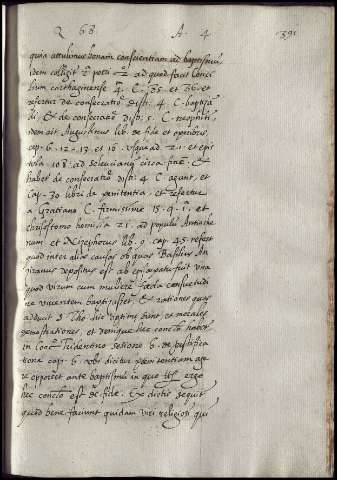 Q 68 A. 4 391
quia attulimus bonam conscientiam ad baptismum
idem colligit ad quod facit Conci
lium cartaginense 4. C. 35. et 36. et
refertur de consecratione disti. 4. C. baptiza
di, & de consecratio disti. 5. C. neophiti
idem ait Augustinus lib. de fide et operibus
cap. 6. 12. 13. et 16. usque ad 21. et epis
tola 108. ad seleucianum circa finem. &
habetur de consecratio disti. 4 C. agunt, et
cap. 30 libri de penitentia. et refertur
a Gratiano C. firmissime 15. q. 1. et
chrisostomo homilia 21. ad populum Antioche
num. et Nizephorus lib. 9. cap. 45. refert
quod inter alias causas ob quas Basilius An
ziranus depositus est ab episcopatu fuit una
quod virum cum muliere fæda consuetudi
ne viventem baptizasset. & rationes quas
adducit S. Tho. hic optime sunt, et morales
demostrationes, et denique hec conclusio habetur
in Conc. Tridentino sessione 6. de justifica
tione cap. 6. ubi dicitur penitentiam age
re oportet ante baptismum in quo ergo
hec conclusio est de fide. Ex dictis sequitur
quod bene faciunt quidam viri religiosi qui